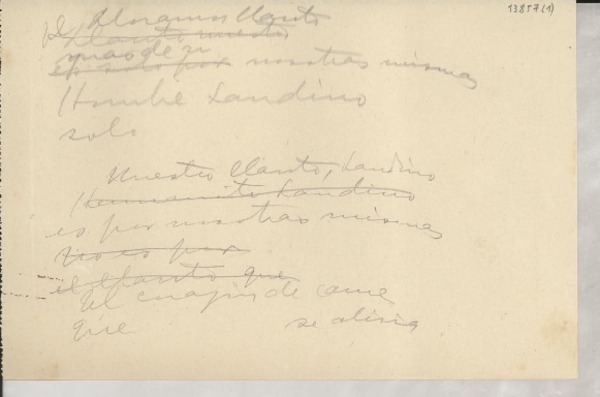 13857(1)
Lloramos llanto
llanto nuestro
es solo por nosotras mismas
Hombre Landino
solo
Nuestro llanto, Landino
Hermanito Landino
es por nosotras mismas
no es por
el llanto que
El de carne
que se alivia